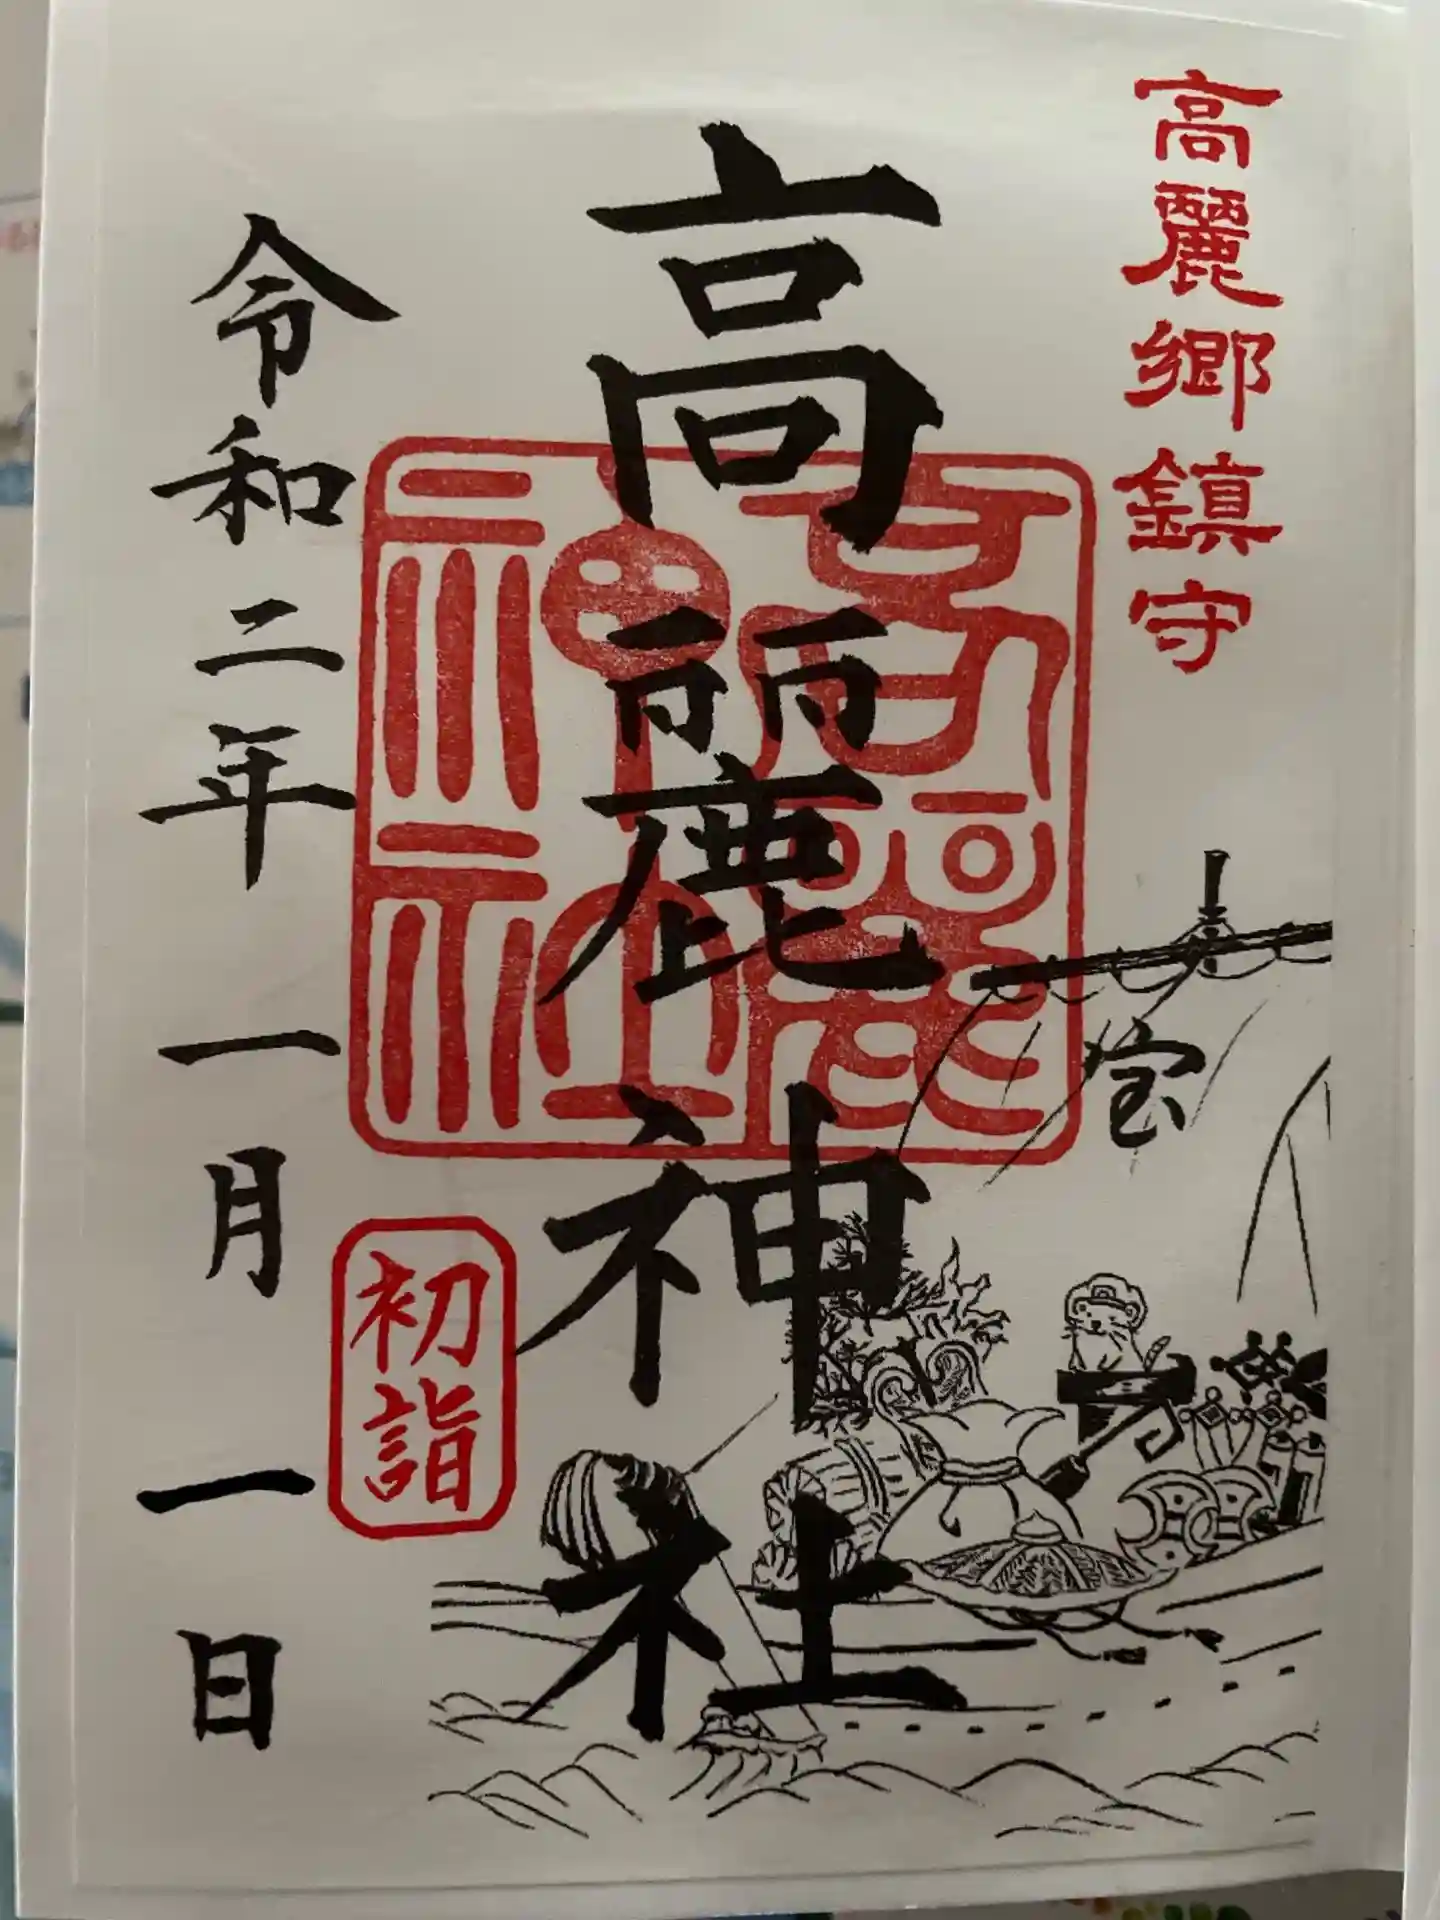 高麗郷鎮守
高麗神社
高麗神社
宝
初詣
令和二年一月一日